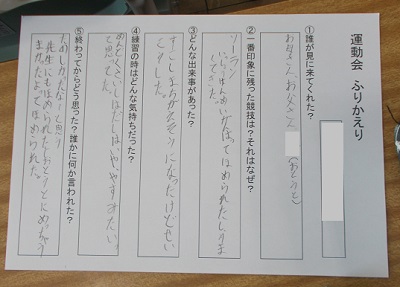 運動会 ふりかえり
①誰が見に来てくれた？
お母さんお父さん (おとうと)
②一番印象に残った競技は？それはなぜ？
ソーラン
いっしょうけんめいがんばってほめられたし
③どんな出来事があった？
すこしまちがえそうになったけどせい
こうした。
④練習の時はどんな気持ちだった？
めんどくさいしはだしはいややすみたい。
て思てた。
⑤終わってからどう思った？誰かに何か言われた？
たのしかったなーと思う
先生にもほめられたしおとうとにめっちゃう
まかったよってほめられた。